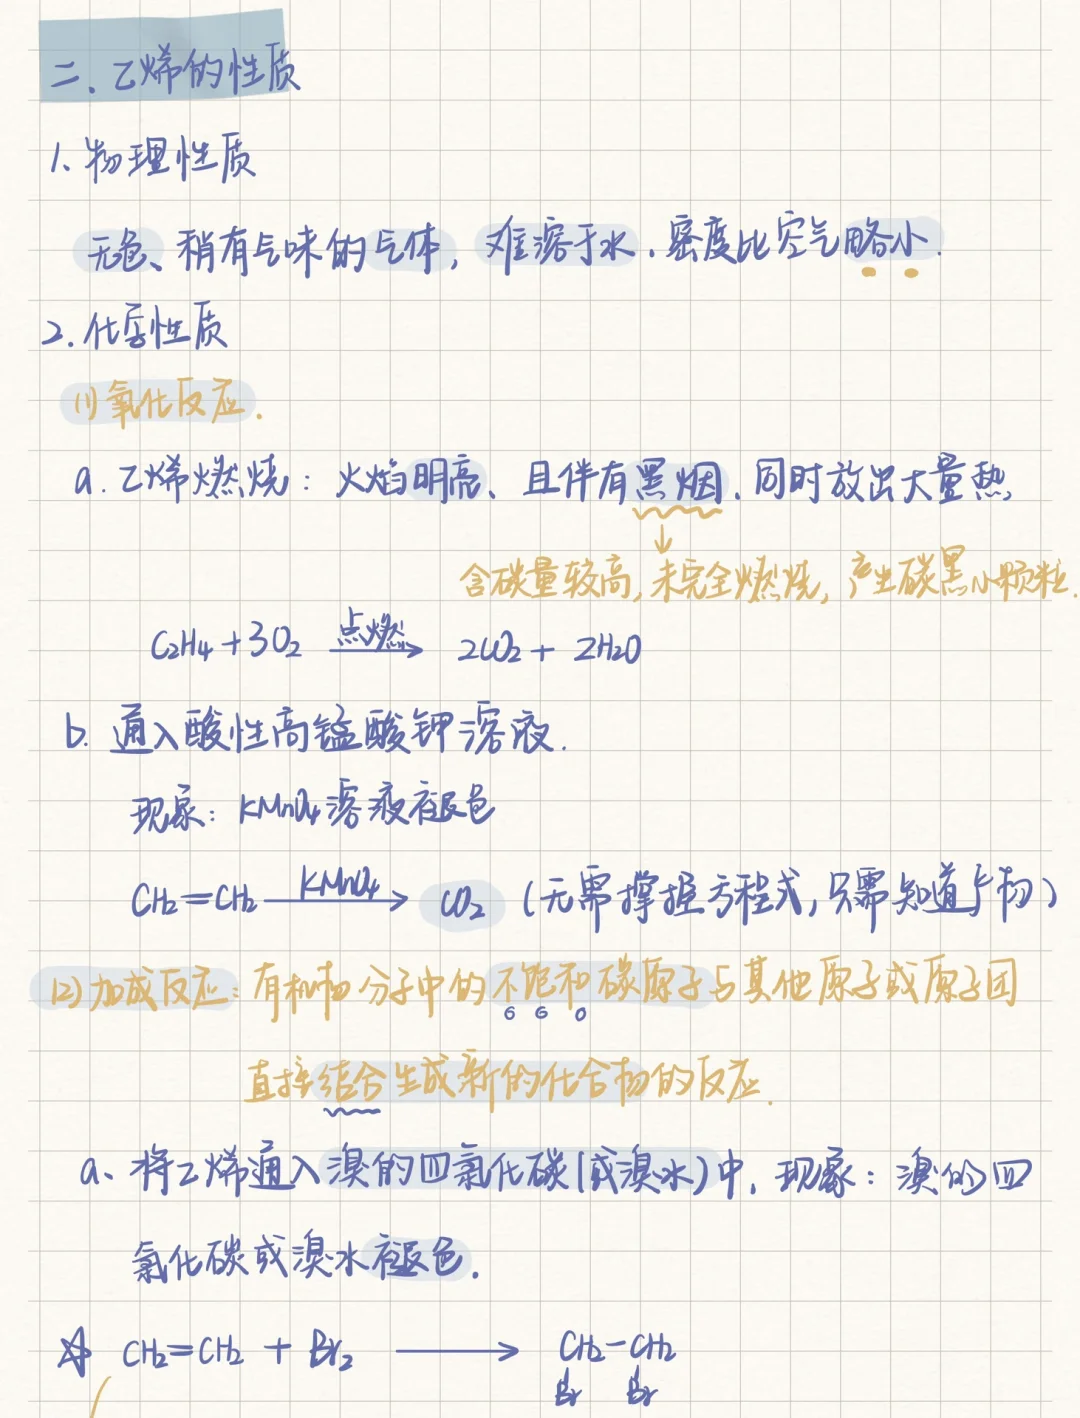 二、乙烯的性质
1、物理性质
无色、稍有气味的气体,难溶于水、密度比空气略小.
2.化学性质
(1)氧化反应.
a.乙烯燃烧:火焰明亮、且伴有黑烟、同时放出大量热
↓
含碳量较高,未完全燃烧,产生碳黑小颗粒.
C2H4+3O2 点燃→ 2CO2+2H2O
b.通入酸性高锰酸钾溶液.
现象:KMnO4溶液褪色
CH2=CH2 KMnO4→ CO2(无需掌握方程式,只需知道产物)
(2)加成反应:有机物分子中的不饱和碳原子与其他原子或原子团
直接结合生成新的化合物的反应.
a、将乙烯通入溴的四氯化碳(或溴水)中,现象:溴的四
氯化碳或溴水褪色.
☆ CH2=CH2 + Br2 → CH2-CH2
Br Br